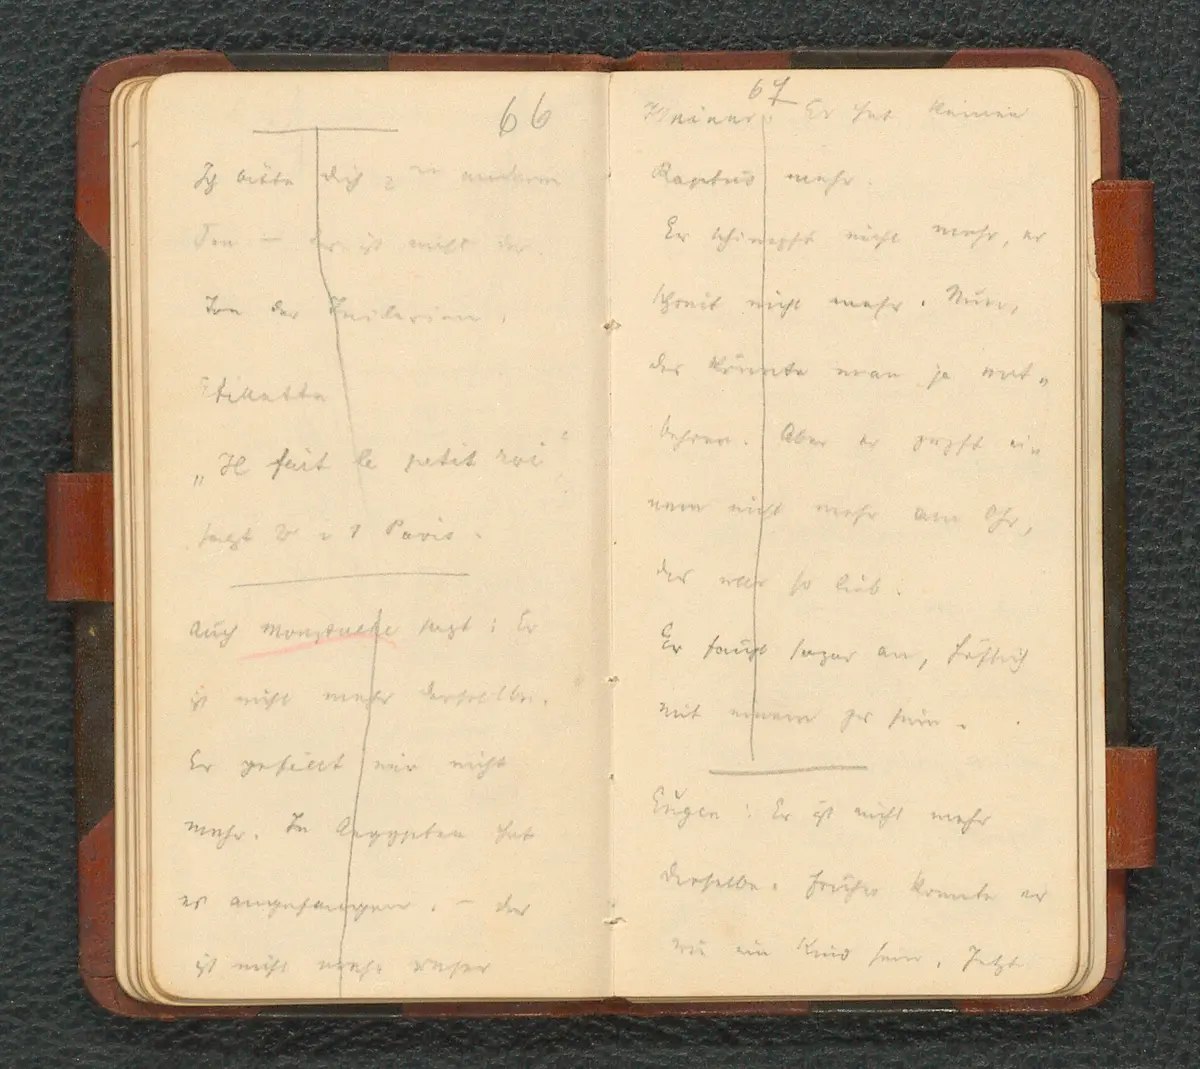 66
Ich bitte dich um anderen
Ton – der ist nicht der
Ton der Tuilerien.
Etikette
„Il fait le petit roi“
sagt Paris.
Auch Monstuelle sagt: Er
ist nicht mehr derselbe.
Er gefällt mir nicht
mehr. In Aegypten hat
es angefangen. – Das
ist nicht mehr unser
67
Kleiner. Er hat keinen
Raptus mehr.
Er schimpft nicht mehr, er
schreit nicht mehr. Nun,
das könnte man ja ent-
behren. Aber er zupft ei-
nem nicht mehr am Ohr,
das war so lieb.
Er fängt sogar an, höflich
mit einem zu sein.
Eugen: Er ist nicht mehr
derselbe. Früher konnte er
wie ein Kind sein. Jetzt